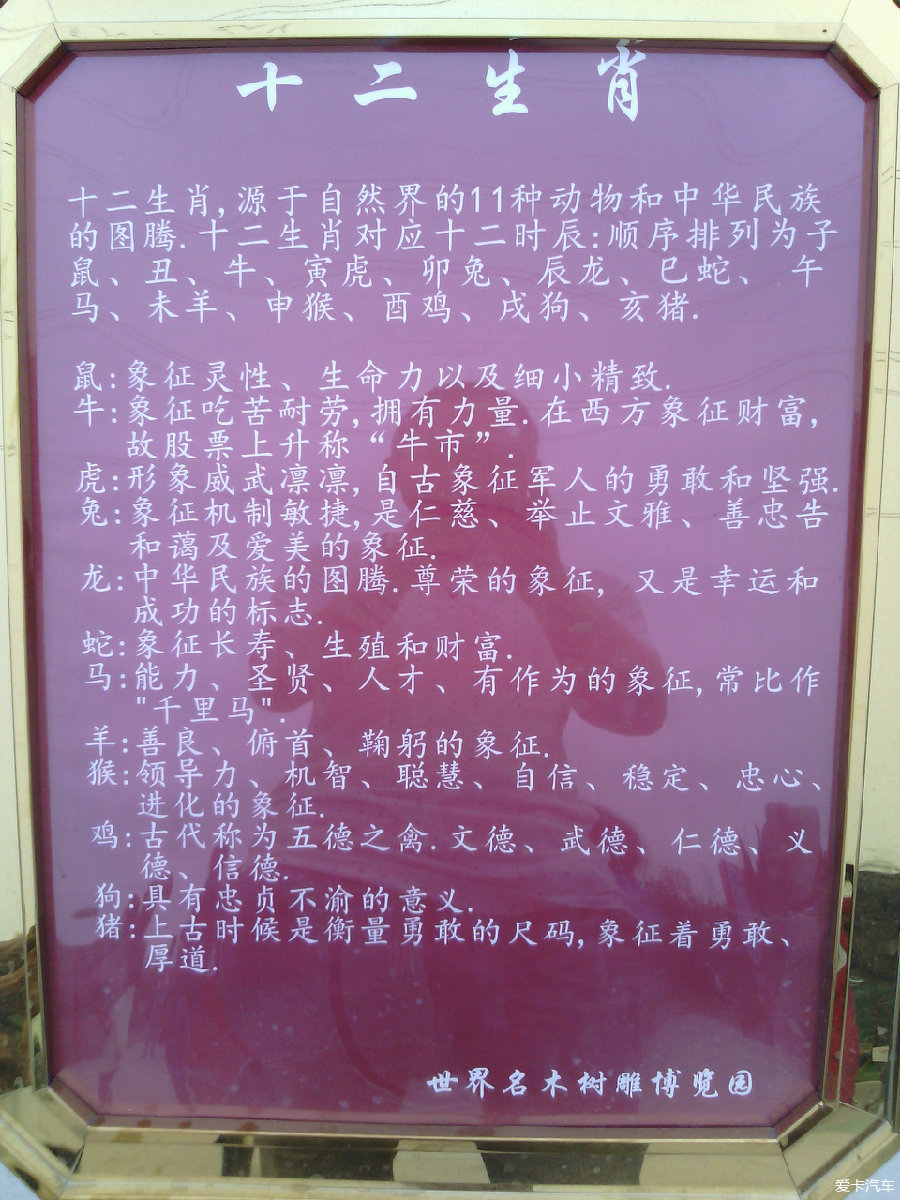 十二生肖
十二生肖,源于自然界的11种动物和中华民族
的图腾.十二生肖对应十二时辰:顺序排列为子
鼠、丑、牛、寅虎、卯兔、辰龙、巳蛇、 午
马、未羊、申猴、酉鸡、戌狗、亥猪.
鼠:象征灵性、生命力以及细小精致.
牛:象征吃苦耐劳,拥有力量.在西方象征财富,
故股票上升称“牛市”.
虎:形象威武凛凛,自古象征军人的勇敢和坚强.
兔:象征机制敏捷,是仁慈、举止文雅、善忠告
和蔼及爱美的象征.
龙:中华民族的图腾.尊荣的象征, 又是幸运和
成功的标志.
蛇:象征长寿、生殖和财富.
马:能力、圣贤、人才、有作为的象征,常比作
"千里马".
羊:善良、俯首、鞠躬的象征.
猴:领导力、机智、聪慧、自信、稳定、忠心、
进化的象征.
鸡:古代称为五德之禽.文德、武德、仁德、义
德、信德.
狗:具有忠贞不渝的意义.
猪:上古时候是衡量勇敢的尺码,象征着勇敢、
厚道.
世界名木树雕博览园
爱卡汽车